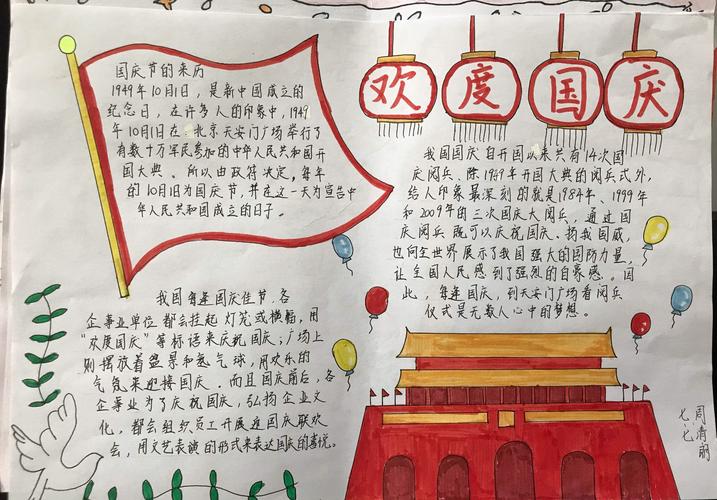 欢度国庆
国庆节的来历
1949年10月1日，是新中国成立的
纪念日，在许多人的印象中，1949
年10月1日在北京天安门广场举行了
有数十万军民参加的中华人民共和国开
国大典。所以由政府决定，每年
的10月1日为国庆节，并在这一天为宣告中
华人民共和国成立的日子。
我国国庆自开国以来共有14次国
庆阅兵、除1949年开国大典的阅兵式外，
给人印象最深刻的就是1984年、1999年
和2009年的三次国庆大阅兵，通过国
庆阅兵既可以庆祝国庆、扬我国威，
也向全世界展示了我国强大的国防力量，
让全国人民感到了强烈的自豪感。因
此，每逢国庆，到天安门广场看阅兵
仪式是无数人心中的梦想。
我国每逢国庆佳节，各
企事业单位都会挂起灯笼或横幅，用
“欢度国庆”等标语来庆祝国庆；广场上
则摆放着盆景和氢气球，用欢乐的
气氛来迎接国庆。而且国庆前后，各
企事业为了庆祝国庆，弘扬企业文
化，都会组织员工开展迎国庆联欢
会，用文艺表演的形式来表达国庆的喜悦。
七.七
周清